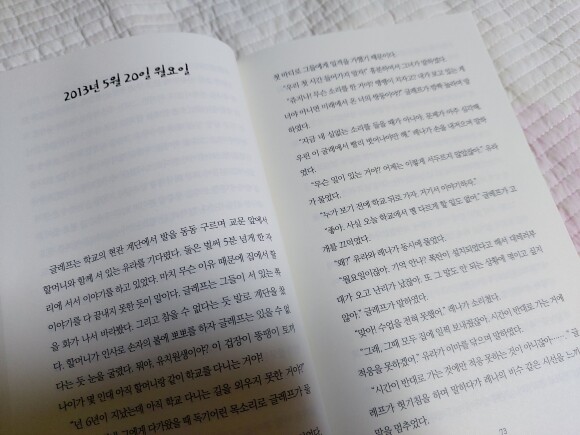 2013년 5월 20일 월요일
글레프는 학교의 현관 계단에서 발을 동동 구르며 교문 앞에서
할머니와 함께 서 있는 유라를 기다렸다. 둘은 벌써 5분 넘게 한 자
리에 서서 이야기를 하고 있었다. 마치 무슨 이유 때문에 집에서 할
이야기를 다 끝내지 못한 듯이 말이다. 글레프는 그들이 서 있는 쪽
을 화가 나서 바라봤다. 그리고 참을 수 없다는 듯 발로 계단을 찼
다. 할머니가 인사로 손자의 볼에 뽀뽀를 하자 글레프는 있을 수 없
다는 듯 눈을 굴렸다. 뭐야, 유치원생이야? 이 겁쟁이 뚱땡이 토끼
나이가 몇 인데 아직 할머니랑 같이 학교를 다니는 거야!
"넌 6년이 지났는데 아직 학교 다니는 길을 외우지 못한 거야?"
그에게 다가왔을 때 독기어린 목소리로 글레프가 물
첫 마디로 그들에게 일격을 가했기 때문이다.
"우리 첫 시간 들어가지 말자!" 흥분하여서 그녀가 말하였다.
하였다.
"지금 내 실없는 소리를 들을 때가 아니야. 문제가 아주 심각해.
우린 이 굴레에서 빨리 벗어나야만 해." 레나가 손을 내저으며 말하
였다.
"무슨 일이 있는 거야? 어제는 이렇게 서두르지 않았잖아." 유라
가 물었다.
"누가 보기 전에 학교 뒤로 가자. 거기서 이야기하자."
"좋아. 사실 오늘 학교에서 별 다르게 할 일도 없어." 글레프가 고
개를 끄덕였다.
"왜?" 유라와 레나가 동시에 물었다.
"월요일이잖아. 기억 안나? 폭탄이 설치되었다고 해서 대테러부
대가 오고 난리가 났잖아. 또 그 일도 안 되는 상황에 떨이고 싶지
않아." 글레프가 말하였다.
"맞아! 수업을 전혀 못했어." 레나가 소리쳤다.
"그래, 그때 모두 집에 일찍 보내졌잖아. 시간이 반대로 가는 거에
적응을 못하겠어." 유라가 이마를 닦으며 말하였다.
"시간이 반대로 가는 것에만 적응 못하는 것이 아니잖아……" 글
레프가 헛기침을 하며 말하다가 레나의 비수 같은 시선을 느끼
말을 멈추었다.
73